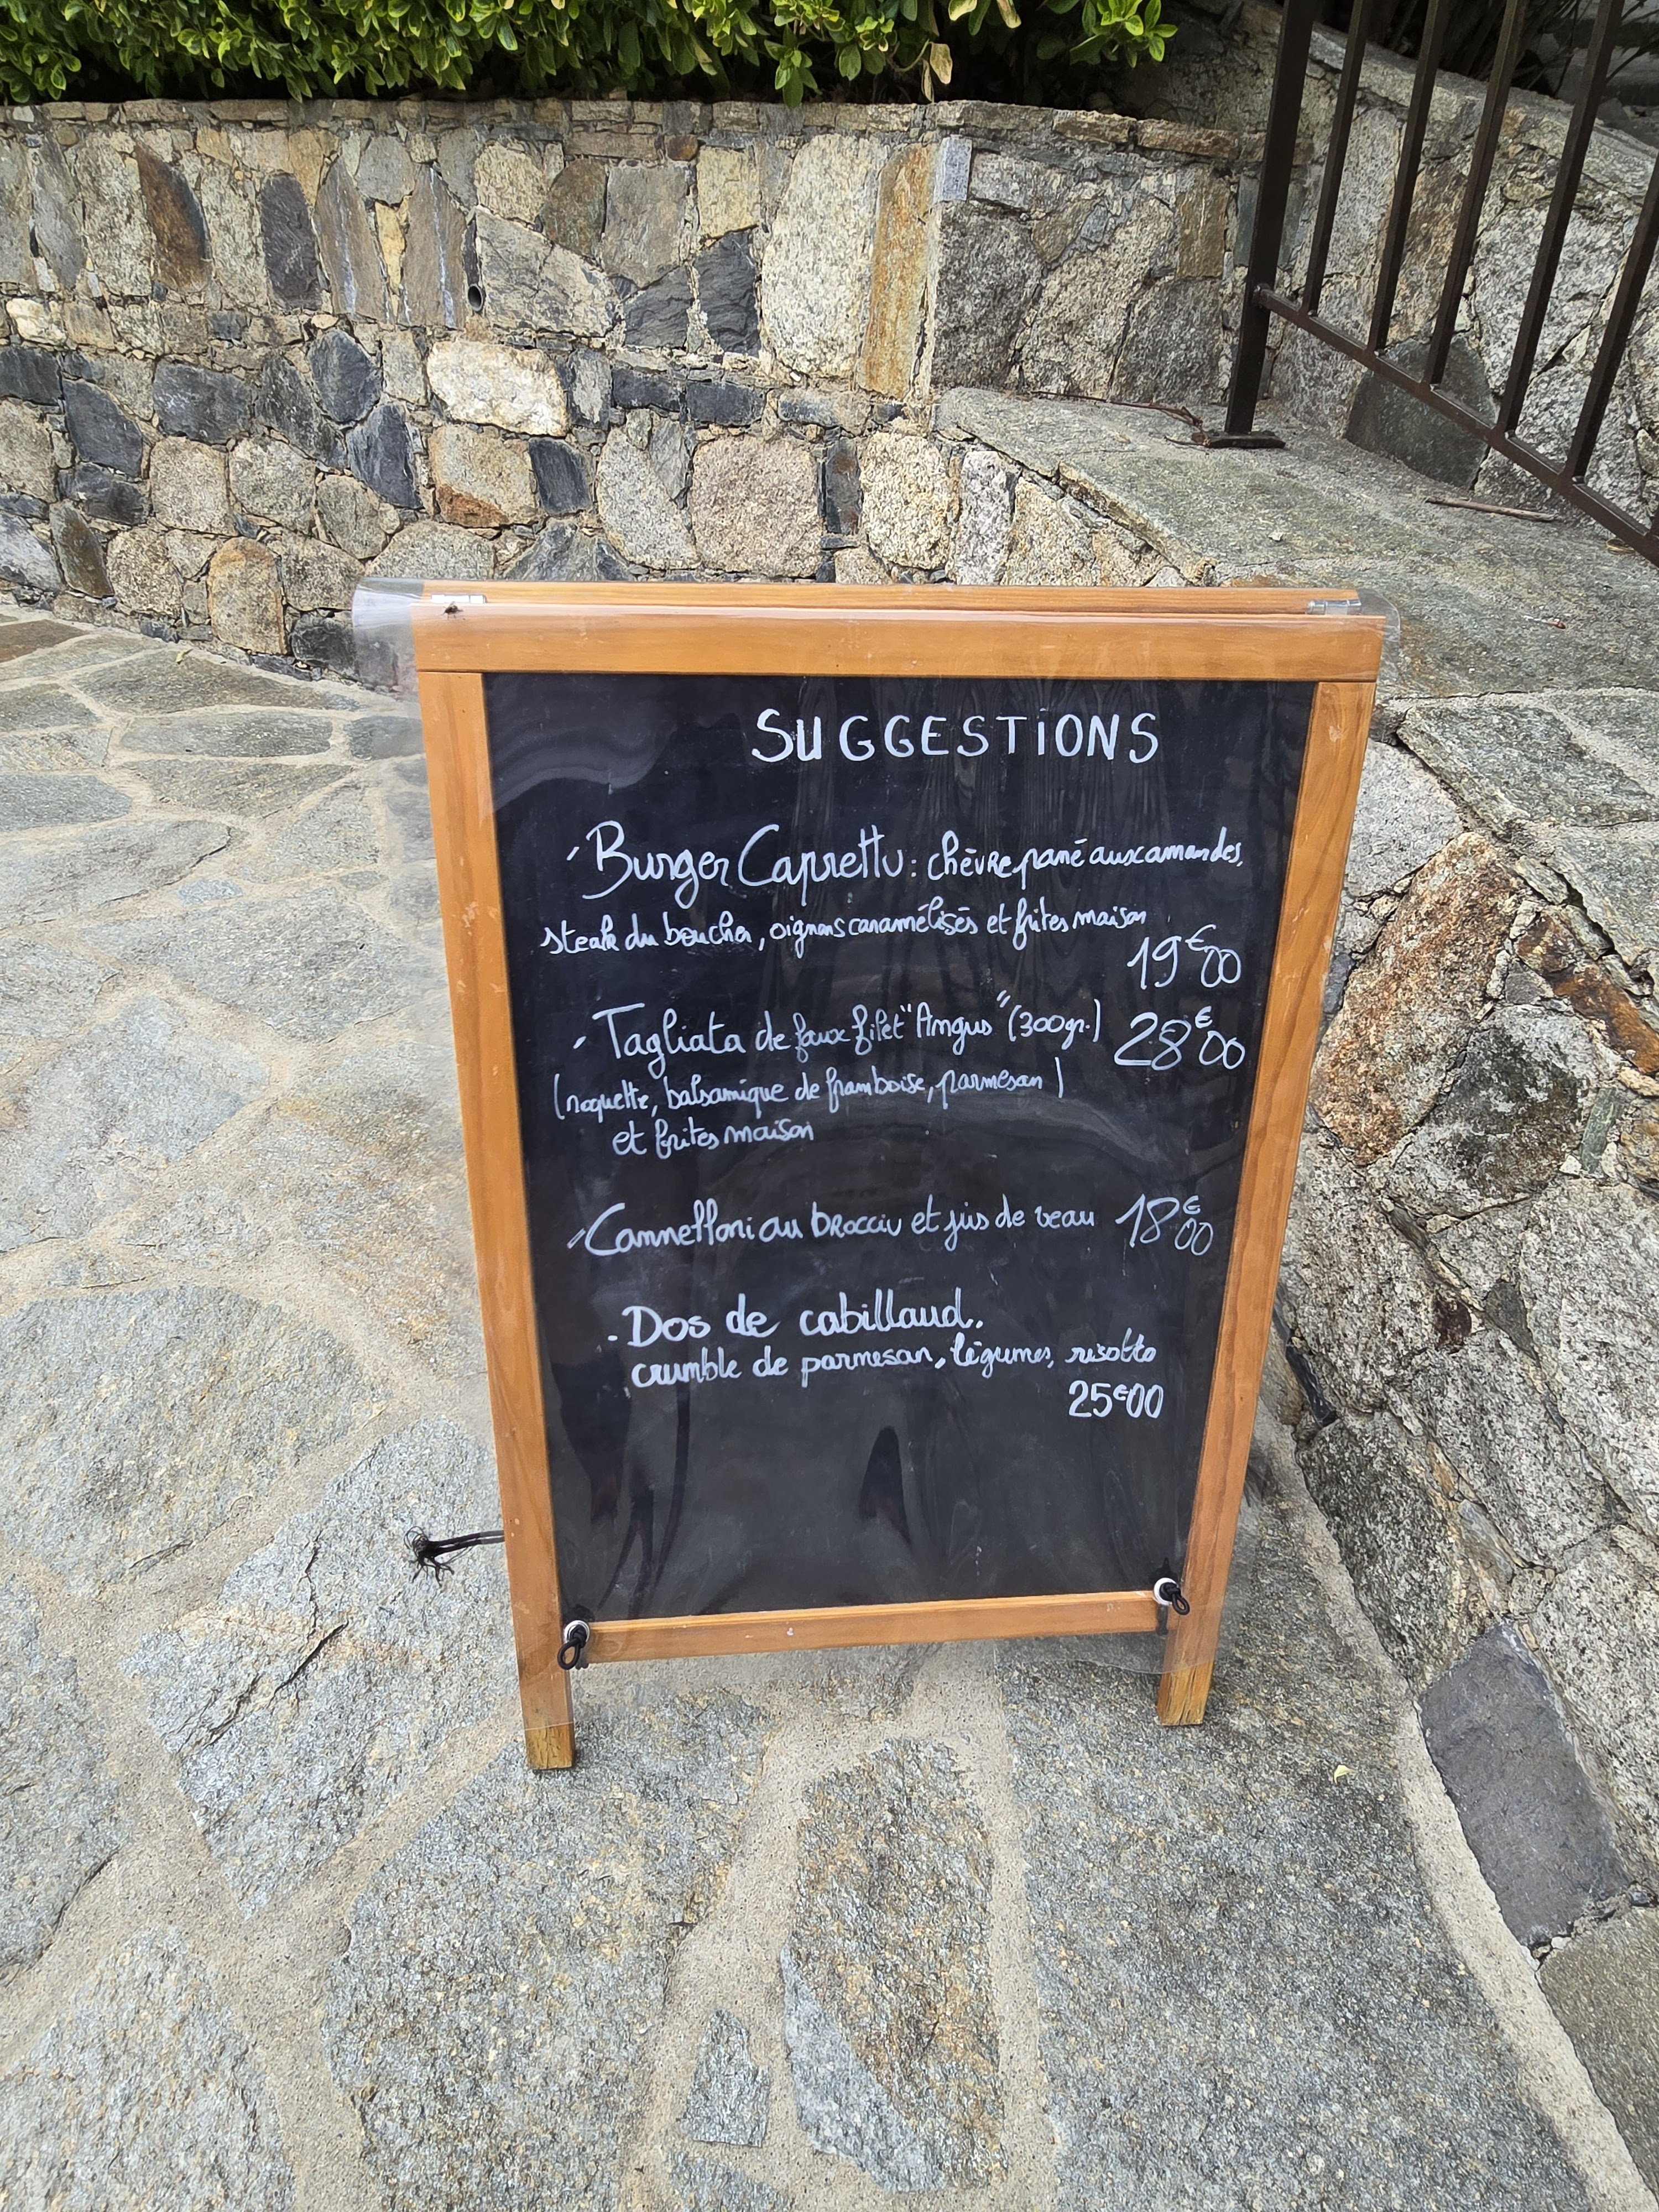 SUGGESTIONS
- Burger Caprettu : chèvre pané aux amandes,
steak du boucher, oignons caramélisés et frites maison
19€00
- Tagliata de faux filet "Angus" (300gr.) 28€00
(roquette, balsamique de framboise, parmesan)
et frites maison
- Cannelloni au brocciu et jus de veau 18€00
- Dos de cabillaud,
crumble de parmesan, légumes, risotto
25€00